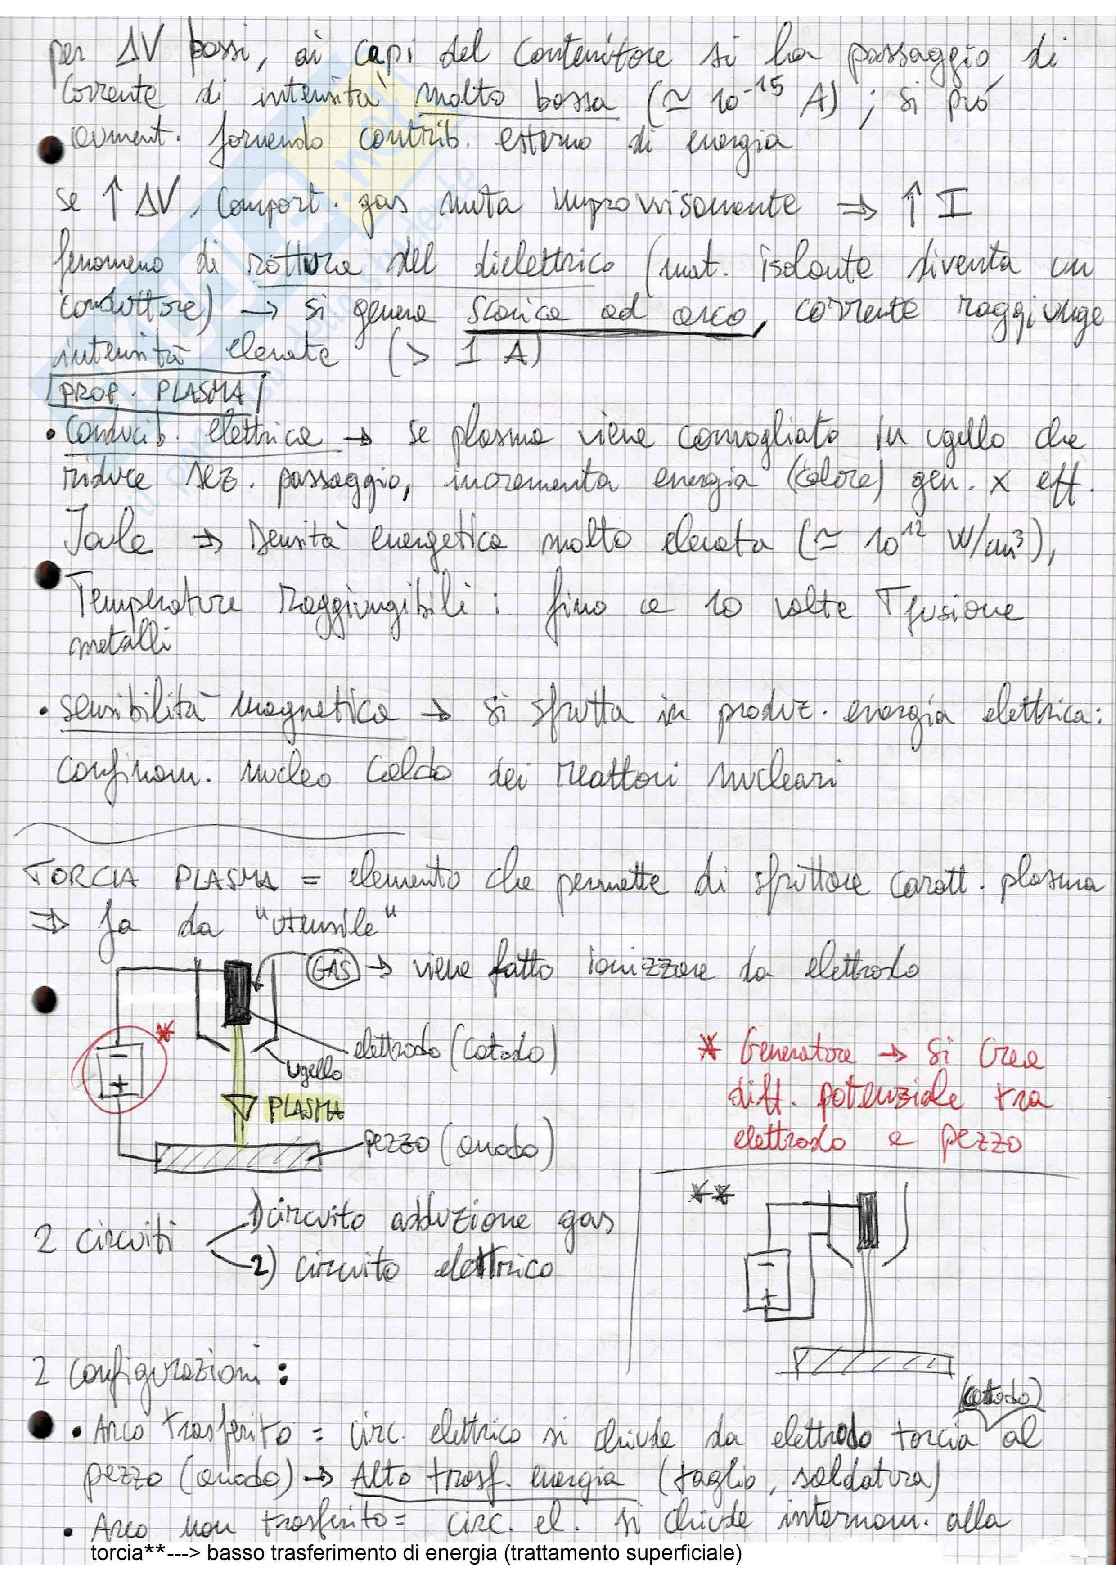 per ΔV bassi, ai capi del contenitore si ha passaggio di
corrente di intensità molto bassa (≃ 10⁻¹⁵ A) ; si può
aument. fornendo contrib. esterno di energia
se ↑ ΔV, comport. gas muta improvvisamente ⇒ ↑ I
fenomeno di rottura del dielettrico (mat. isolante diventa un
conduttore) → si genera scarica ad arco, corrente raggiunge
intensità elevate (> 1 A)
PROP. PLASMA
• Conducib. elettrica → se plasma viene convogliato in ugello che
riduce sez. passaggio, incrementa energia (calore) gen. x eff.
Joule ⇒ Densità energetica molto elevata (≃ 10¹² W/cm³),
Temperature raggiungibili : fino a 10 volte T fusione
metalli
• sensibilità magnetica → si sfrutta in produz. energia elettrica:
confinam. nucleo caldo dei reattori nucleari
TORCIA PLASMA = elemento che permette di sfruttare caratt. plasma
⇒ fa da "utensile"
GAS → viene fatto ionizzare da elettrodo
*
elettrodo (catodo)
ugello
PLASMA
pezzo (anodo)
−
+
* Generatore → si crea
diff. potenziale tra
elettrodo e pezzo
2 circuiti
1) circuito adduzione gas
2) circuito elettrico
**
−
+
2 configurazioni :
(catodo)
• Arco trasferito = circ. elettrico si chiude da elettrodo torcia al
pezzo (anodo) → Alto trasf. energia (taglio, saldatura)
• Arco non trasferito = circ. el. si chiude internam. alla
torcia**---> basso trasferimento di energia (trattamento superficiale)